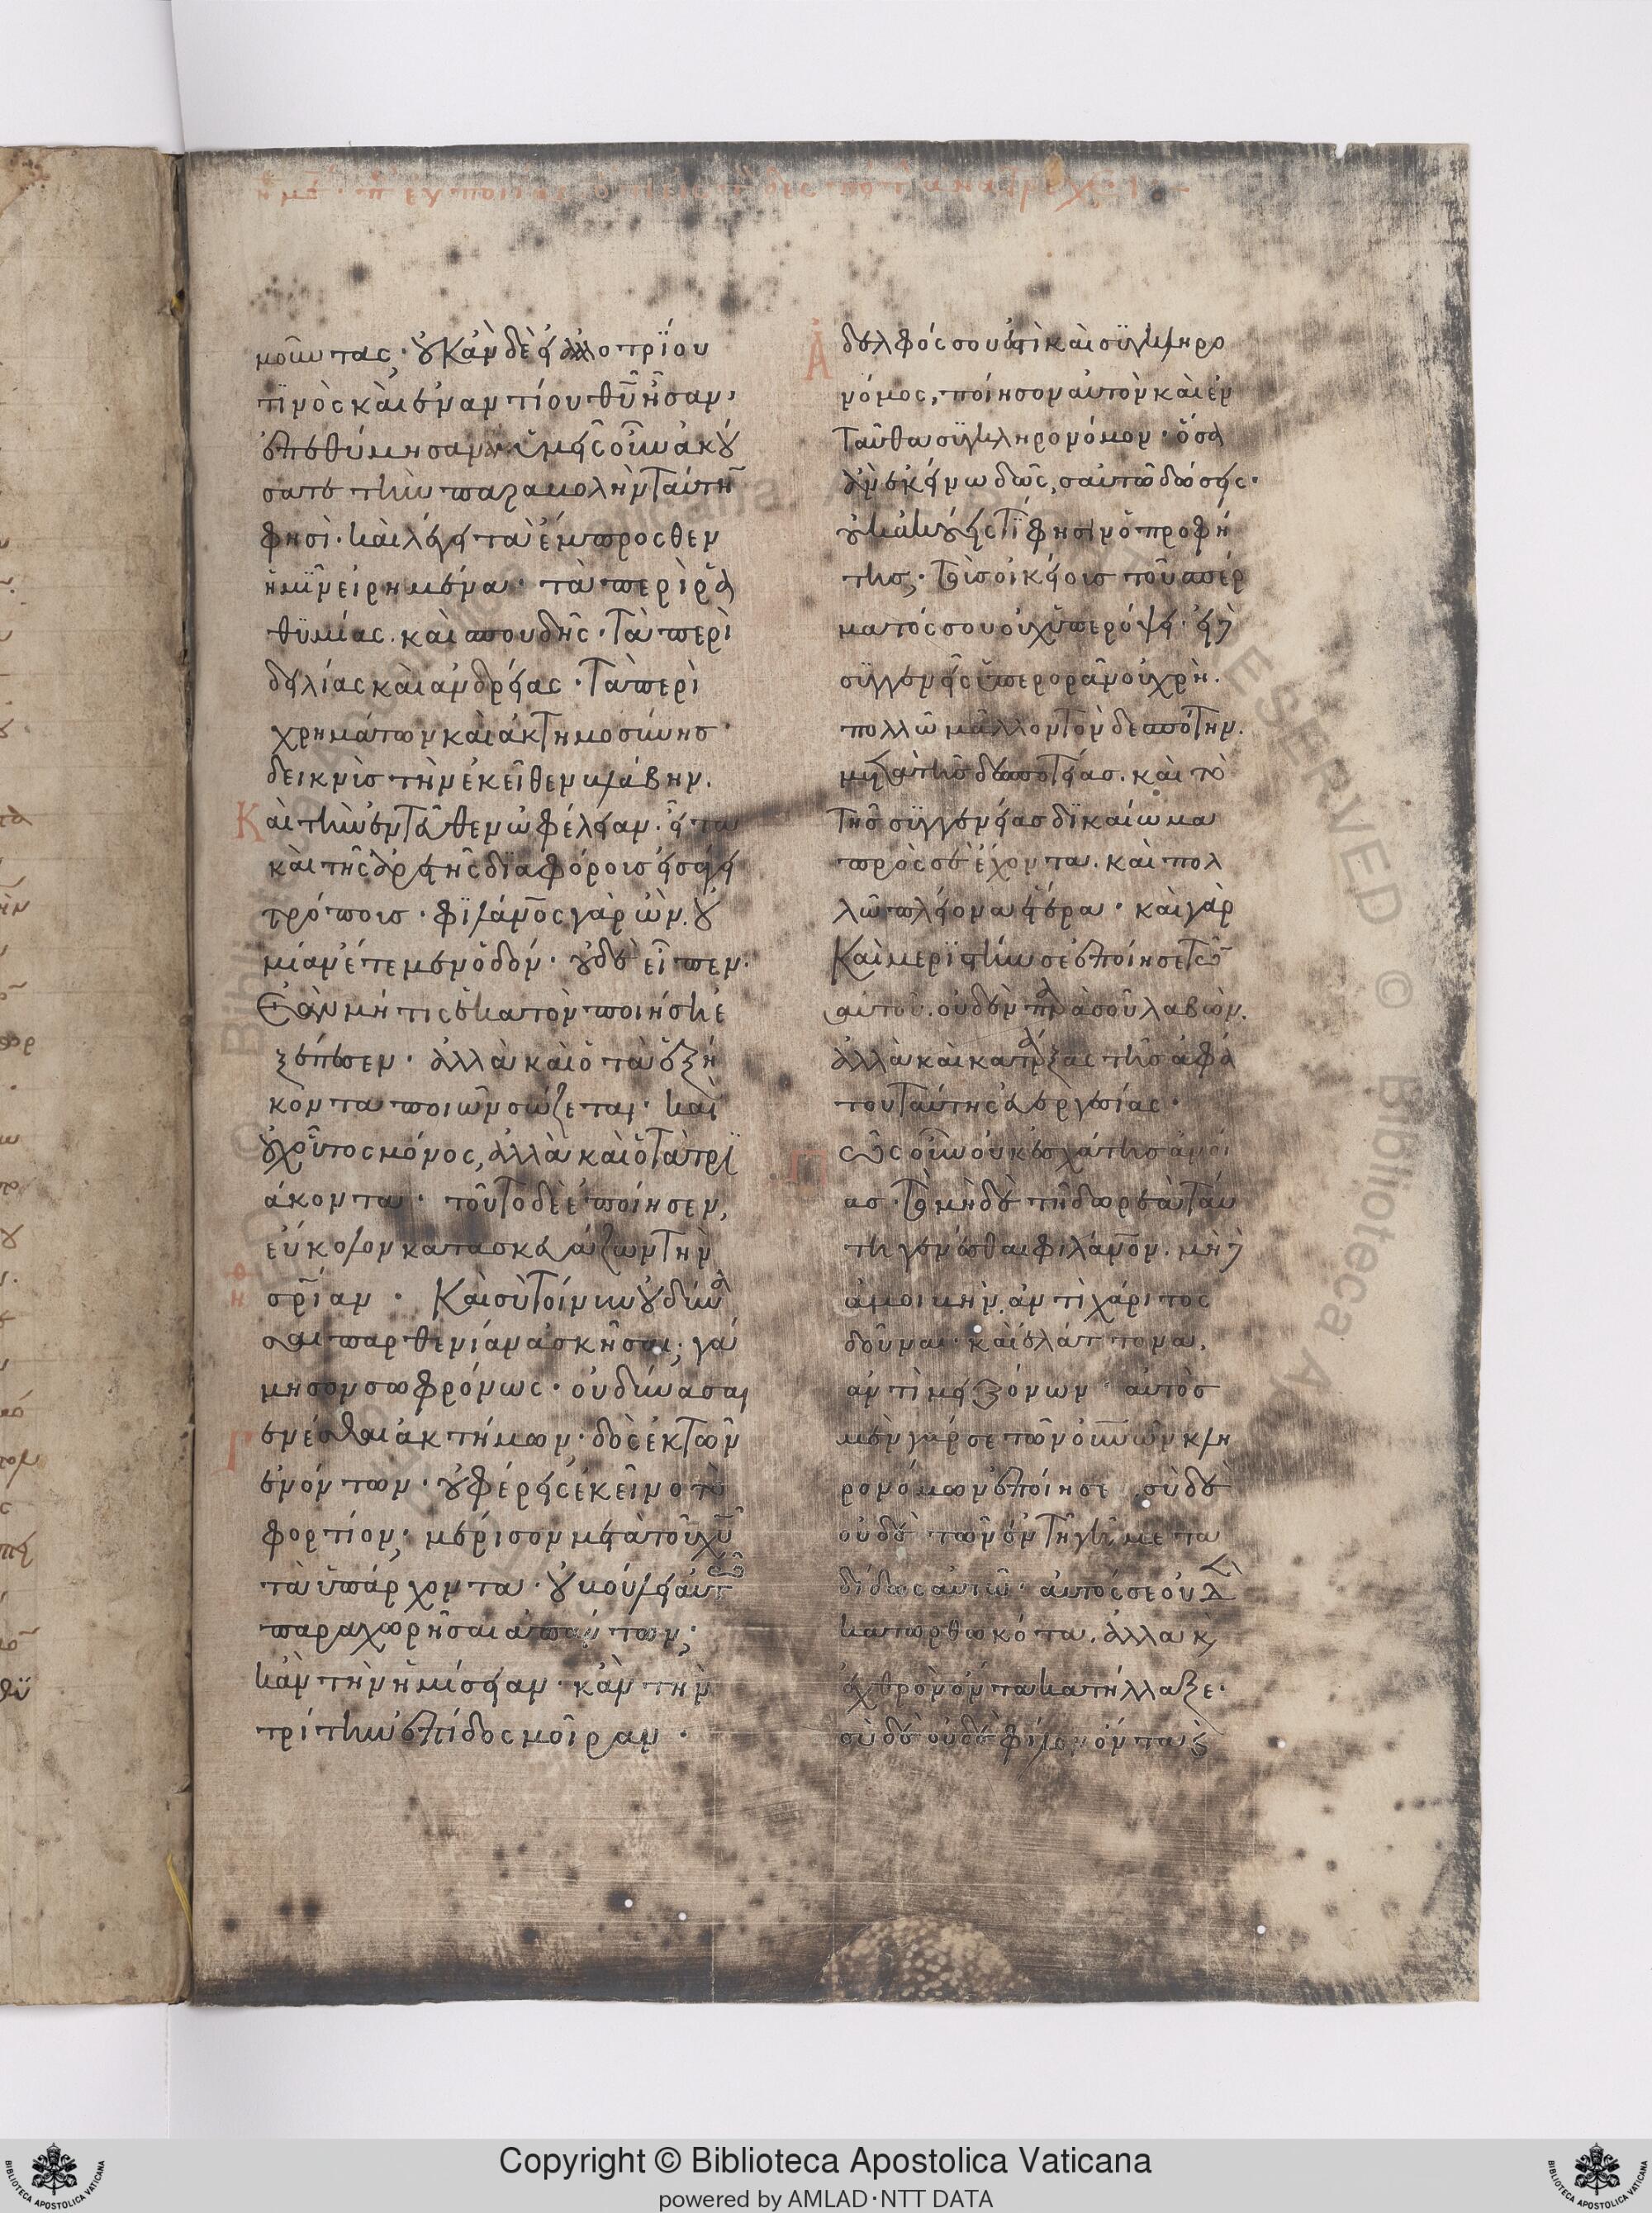 μοῦντας; οὐκ ἂν δὲ ἀλλοτρίου
τινὸς καὶ ἐναντίου θῦ ἦσαν,
ἐπεθύμησαν· ὑμεῖς οὖν ἀκού
σατε τὴν παραβολὴν ταύτην
φησὶ· καὶ λέγει τὰ ἔμπροσθεν
ἡμῖν εἰρημένα· τὰ περὶ ῥᾳ
θυμίας· καὶ σπουδῆς· τὰ περὶ
δειλίας καὶ ἀνδρείας· τὰ περὶ
χρημάτων καὶ ἀκτημοσύνης·
δεικνὺς τὴν ἐκεῖθεν βλάβην.
Καὶ τὴν ἐντεῦθεν ὠφέλειαν. εἶτα
καὶ τῆς ἀρετῆς διαφόρους εἰσάγει
τρόπους· φιλάνος γὰρ ὢν, οὐ
μίαν ἔτεμεν ὁδόν· οὐδὲ εἶπεν.
Ἐὰν μή τις ἑκατὸν ποιήση ἐ
ξέπεσεν· ἀλλὰ καὶ ὁ τὰ ἑξή
κοντα ποιῶν σώζεται· καὶ
οὐχ οὗτος μόνος, ἀλλὰ καὶ ὁ τὰ τρι
άκοντα· τοῦτο δὲ ἐποίησεν,
εὔκολον κατασκευάζων τὴν
σρίαν· Καὶ σὺ τοίνυν οὐ δύνα
σαι παρθενίαν ἀσκῆσαι; γά
μησον σωφρόνως· οὐ δύνασαι
γενέσθαι ἀκτήμων· δὸς ἐκ τῶν
ἐνόντων· οὐ φέρεις ἐκεῖνο τὸ
φορτίον; μέρισον μετὰ τοῦ χῦ
τὰ ὑπάρχοντα· οὐ βούλει αὐτῶ
παραχωρῆσαι ἁπάντων;
κἂν τὴν ἡμίσειαν· κἂν τὴν
τρίτην ἐπίδος μοῖραν·
Ἀδελφός σου ἐστὶ καὶ συγκληρο
νόμος, ποίησον αὐτὸν καὶ ἐν
ταῦθα συγκληρονόμον· ὅσα
ἂν ἐκείνω δῶς, σαυτῶ δώσεις·
οὐκ ἀκούεις τί φησιν ὁ προφή
της; Τοὺς οἰκείους τοῦ σπέρ
ματός σου οὐχ ὑπερόψει· εἰ δὲ
συγγενεῖς ὑπερορᾶν οὐ χρὴ.
πολλῶ μᾶλλον τὸν δεσπότην.
μετὰ τῆς δεσποτείας. καὶ τὸ
τῆς συγγενείας δικαίωμα
πρὸς σὲ ἔχοντα. καὶ πολ
λῶ πλείονα ἕτερα· καὶ γὰρ
καὶ μεριστήν σε ἐποίησε τῶν
αὐτοῦ. οὐδὲν παρὰ σοῦ λαβὼν.
ἀλλὰ καὶ κατάρξας τῆς ἀφά
του ταύτης εὐεργεσίας·
Πῶς οὖν οὐκ ἐσχάτης ἀνοί
ας· τὸ μηδὲ τῆ δωρεᾶ ταύ
τη γενέσθαι φιλάνον. μηδὲ
ἀμοιβὴν ἀντὶ χάριτος
δοῦναι· καὶ ἐλάττονα,
ἀντὶ μειζόνων· αὐτὸς
μὲν γάρ σε τῶν οὐνῶν κλη
ρονόμον ἐποίησε· σὺ δὲ
οὐδὲ τῶν ἐν τῆ γῆ μετα
δίδως αὐτῶ· αὐτός σε οὐδὲν
κατωρθωκότα. ἀλλὰ κ
ἐχθρὸν ὄντα κατήλλαξε·
σὺ δὲ οὐδὲ φίλον ὄντα